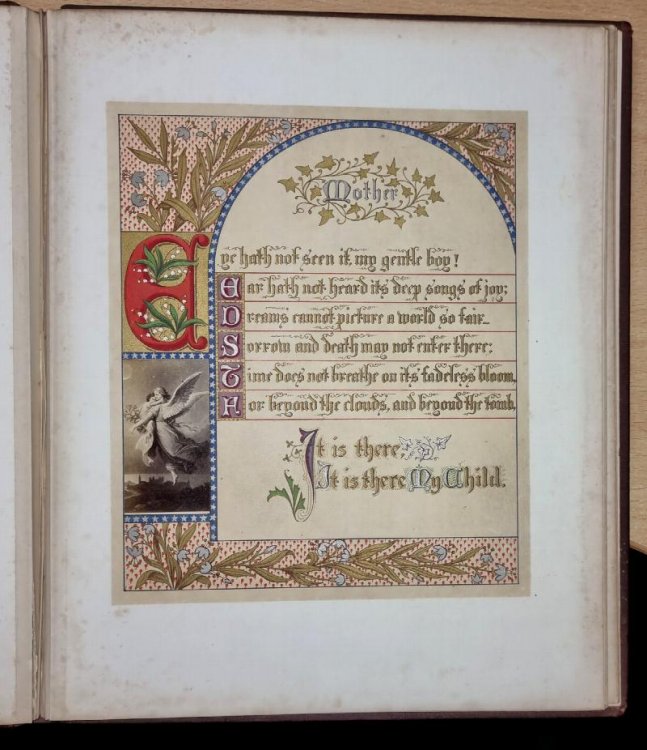 Mother
Eye hath not seen it my gentle boy!
Ear hath not heard its deep songs of joy;
Dreams cannot picture a world so fair_
Sorrow and death may not enter there:
Time does not breathe on its fadeless bloom,
For beyond the clouds, and beyond the tomb,
It is there
It is there My Child.